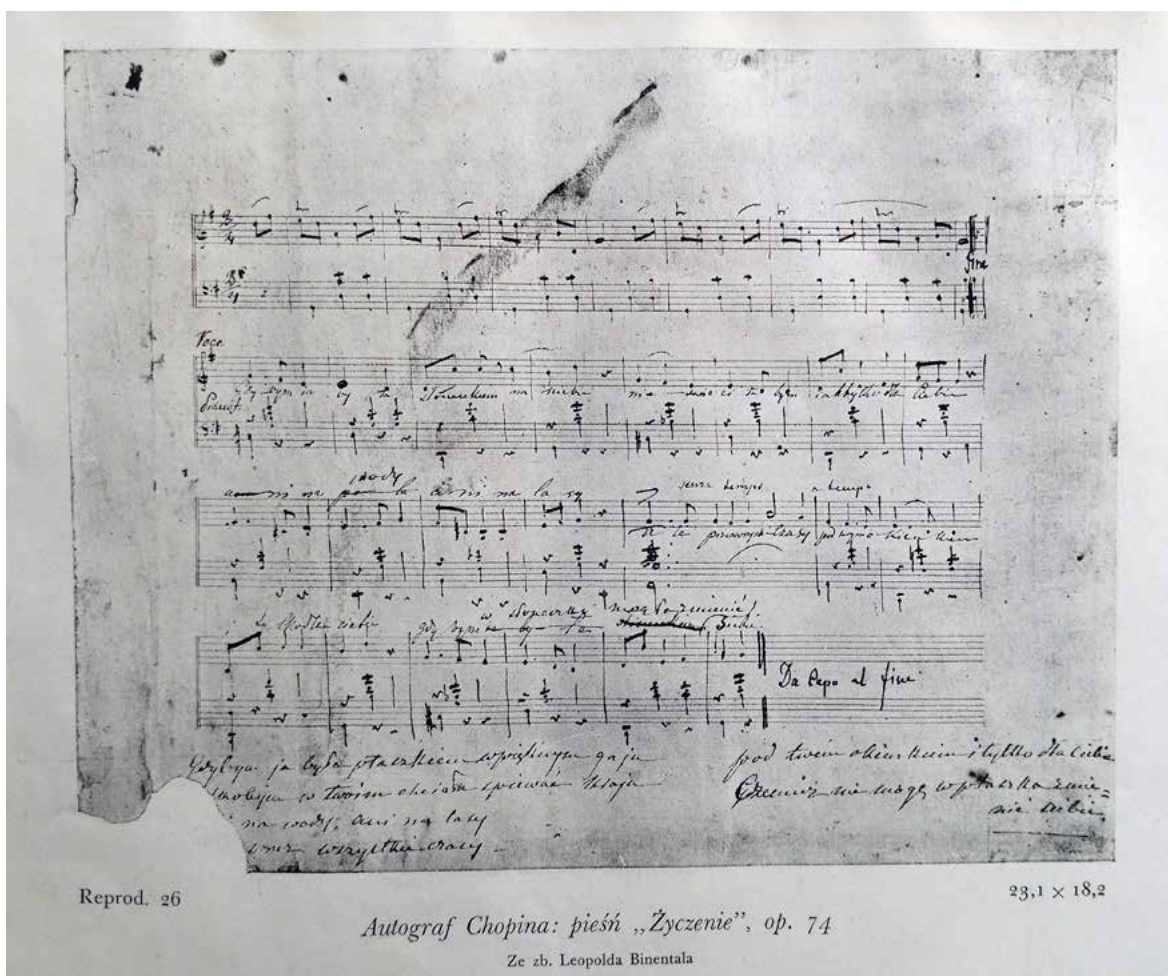 fine
Voce
Gdy bym ia by ła Słoneczkiem na niebie nie świeciła bym jak tylko dla Ciebie
a ni na wody a ni na la sy
senza tempo a tempo
po wszystkie czasy pod twym okienkiem
i tylko dla ciebie Gdy bym w słoneczko mogła zmienić Siebie
Da Capo al fine
Gdybym ja była ptaszkiem w pięknym gaju
w twoim chciała śpiewać kraju
na wody, ani na lasy
wszystkie czasy
pod twém okienkiem i tylko dla ciebie
Czemuż nie mogę w ptaszka zmie-
nić siebie.
Reprod. 26
23,1 × 18,2
Autograf Chopina: pieśń „Życzenie”, op. 74
Ze zb. Leopolda Binentala